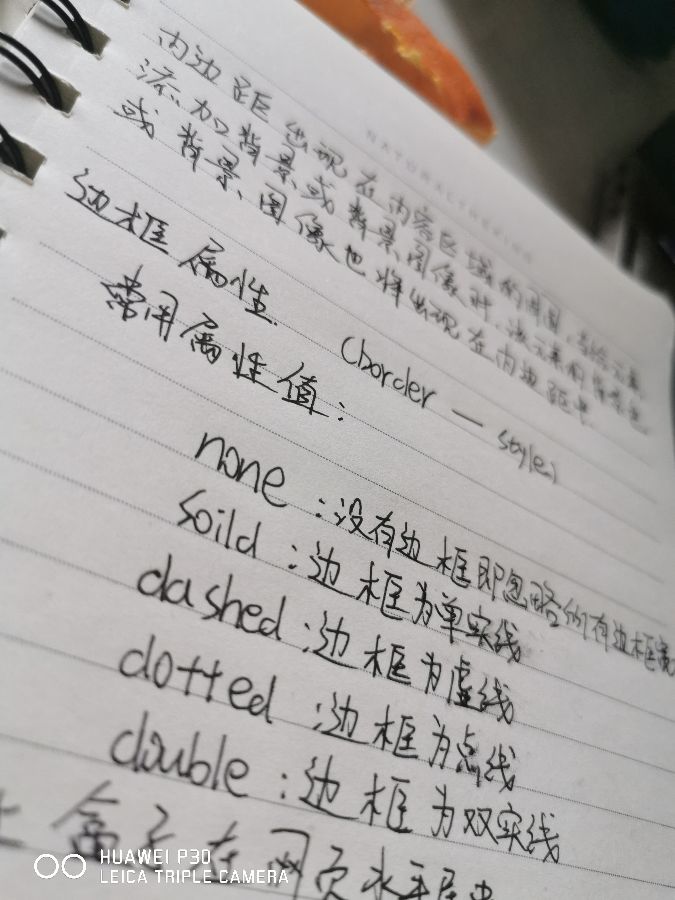 NATURAL
内边距出现在内容区域的周围,当给元素
添加背景或背景图像时,该元素的背景色
或背景图像也将出现在内边距中
边框属性 (border — style)
常用属性值:
none:没有边框即忽略所有边框宽
soild:边框为单实线
dashed:边框为虚线
dotted:边框为点线
double:边框为双实线
盒子在网页水平居中
HUAWEI P30
LEICA TRIPLE CAMERA